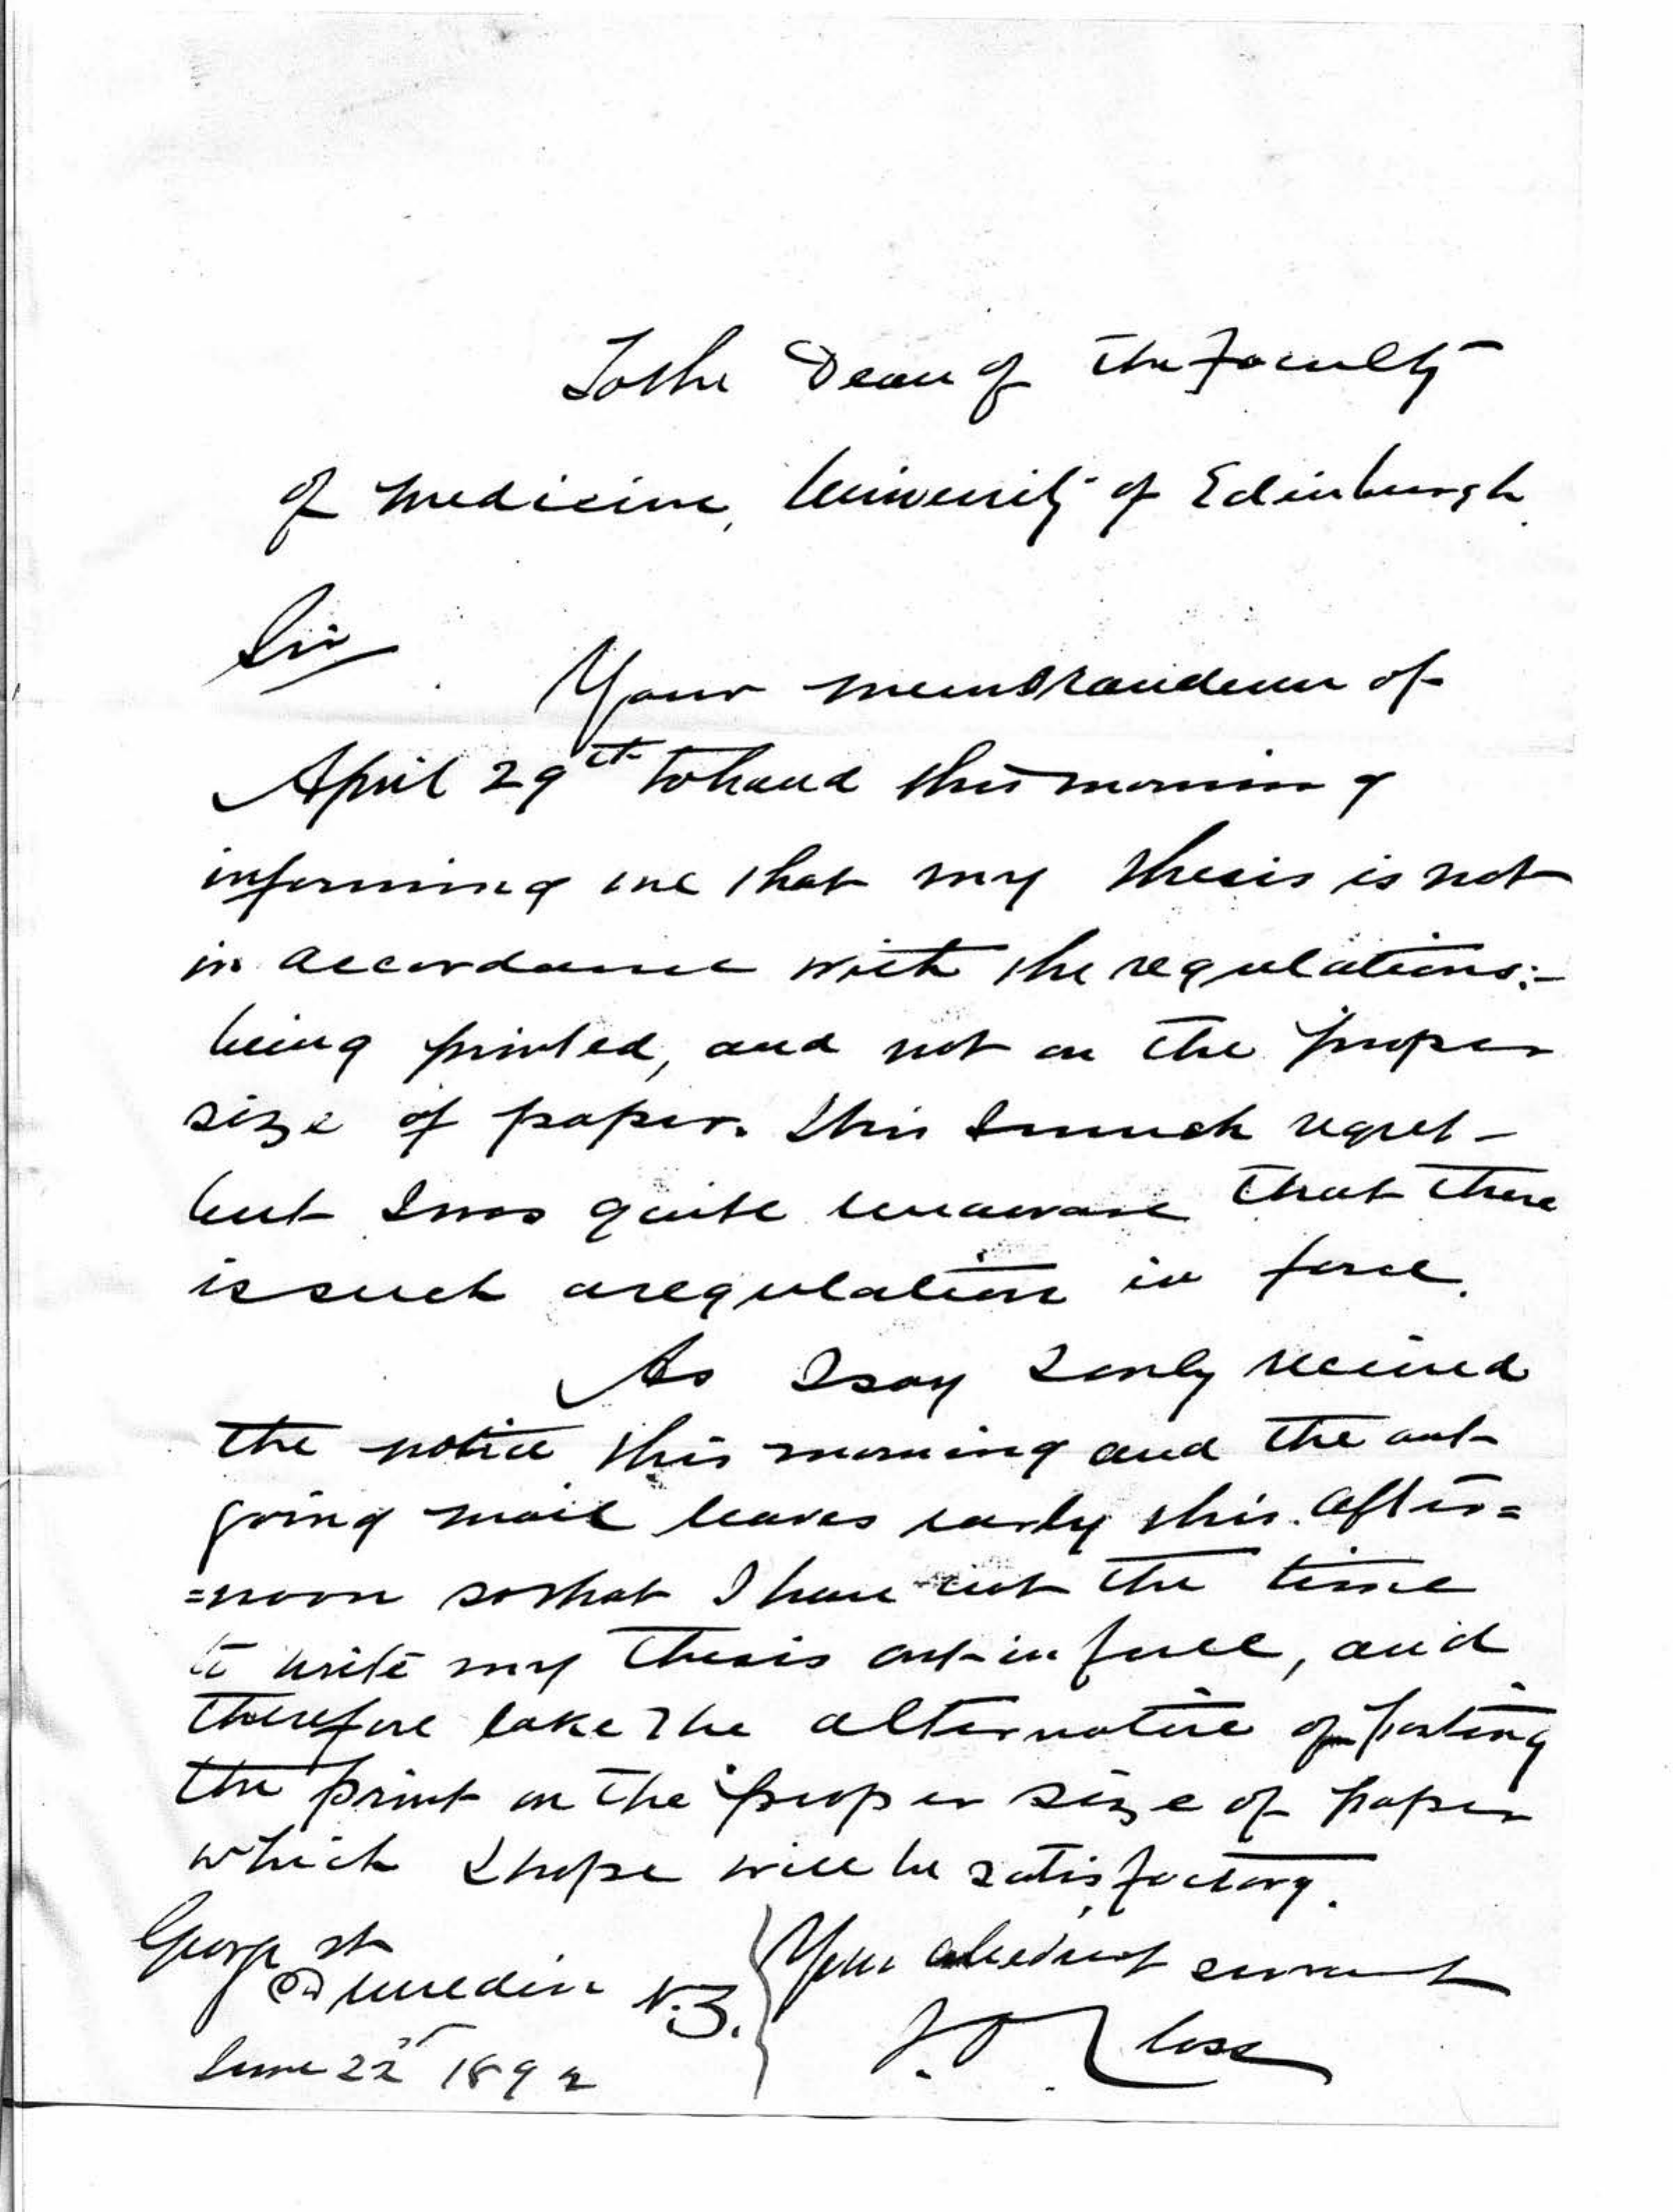 To the Dean of the Faculty
of medicine, University of Edinburgh.
Sir
Your memorandum of
April 29th to hand this morning
informing me that my thesis is not
in accordance with the regulations:-
being printed, and not on the proper
size of paper. This I much regret -
but I was quite unaware that there
is such a regulation in force.
As I say I only received
the notice this morning and the out-
going mail leaves early this. after=
=noon so that I have not the time
to write my thesis out in full, and
therefore take the alternative of pasting
the print on the proper size of paper
which I hope will be satisfactory.
George st
Dunedin N.Z.
June 22 1892
Your obedient servant